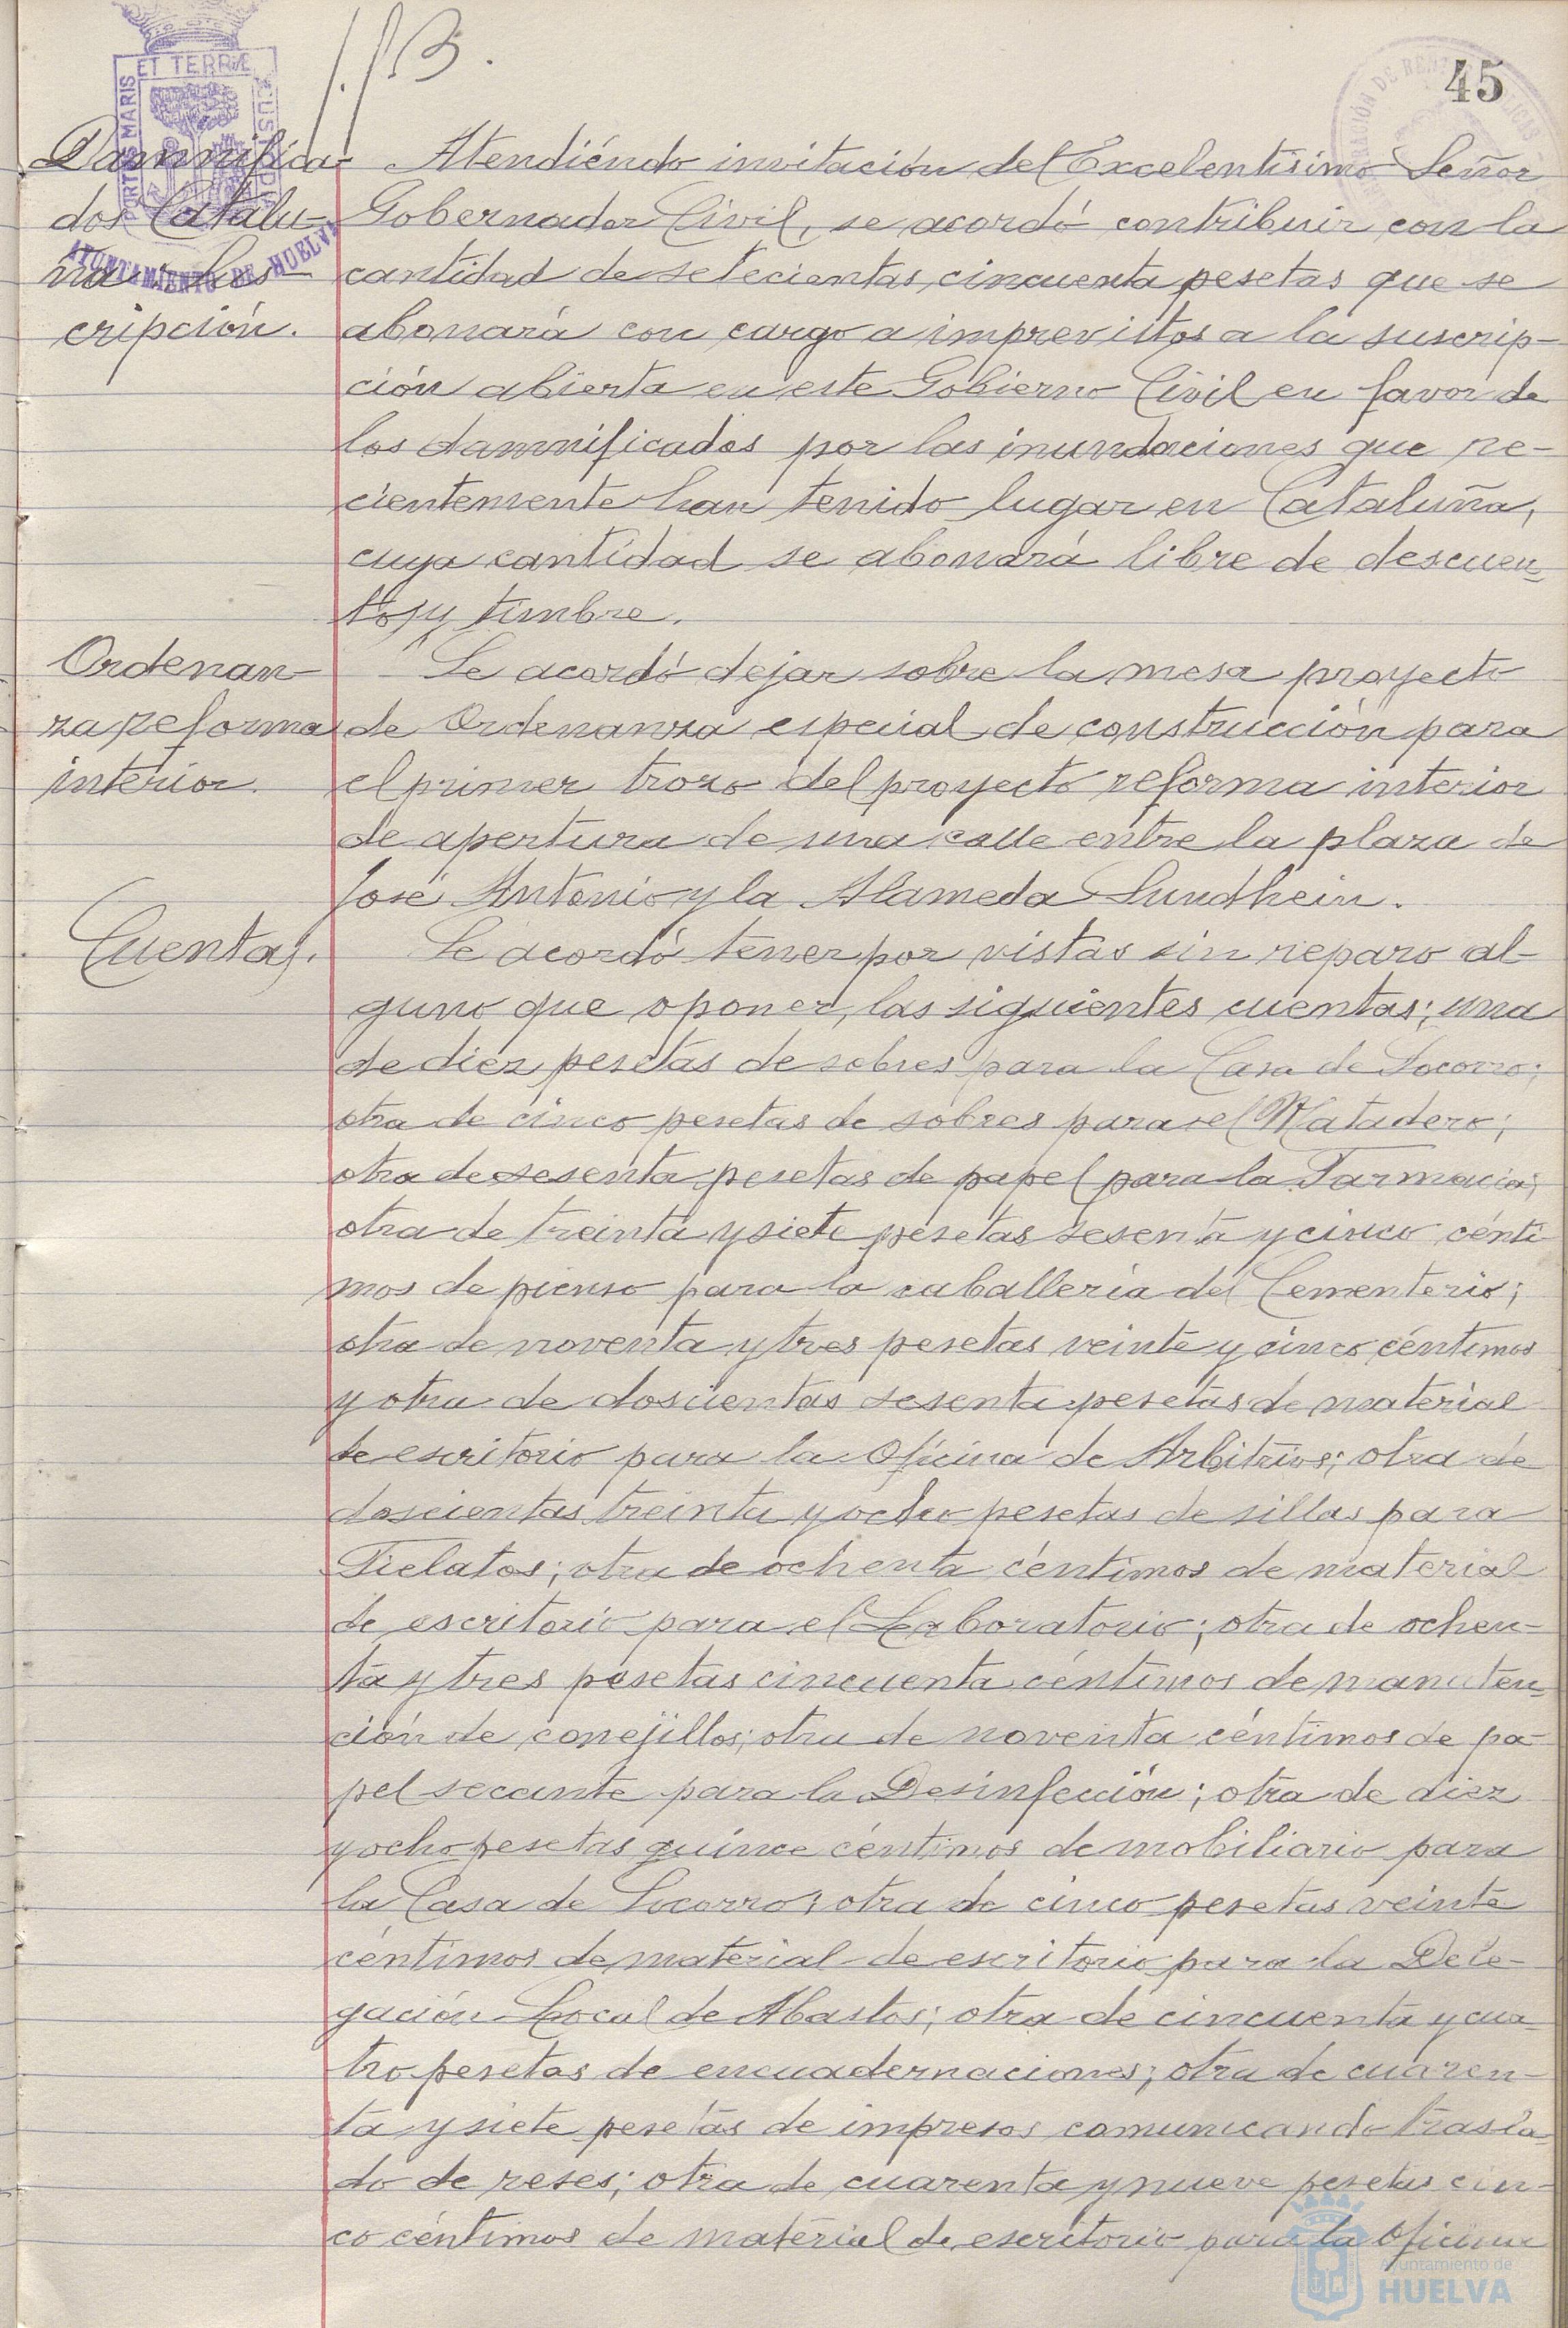 45
PORTUS MARIS
ET TERRÆ
CUSTODIA
AYUNTAMIENTO DE HUELVA
Damnifica-
dos Catalu-
ña. Sus-
cripción.
Atendiéndo invitación del Excelentísimo Señor
Gobernador Civil, se acordó contribuir con la
cantidad de setecientas cincuenta pesetas que se
abonará con cargo a imprevistos a la suscrip-
ción abierta en este Gobierno Civil en favor de
los damnificados por las inundaciones que re-
cientemente han tenido lugar en Cataluña,
cuya cantidad se abonará libre de descuen-
tos y timbre.
Ordenan-
za reforma
interior.
Se acordó dejar sobre la mesa proyecto
de Ordenanza especial de construcción para
el primer trozo del proyecto reforma interior
de apertura de una calle entre la plaza de
José Antonio y la Alameda Sundhein.
Cuentas.
Se acordó tener por vistas sin reparo al-
guno que oponer, las siguientes cuentas; una
de diez pesetas de sobres para la Casa de Socorro;
otra de cinco pesetas de sobres para el Matadero;
otra de sesenta pesetas de papel para la Farmacia;
otra de treinta y siete pesetas sesenta y cinco cénti-
mos de pienso para la caballería del Cementerio;
otra de noventa y tres pesetas veinte y cinco céntimos
y otra de doscientas sesenta pesetas de material
de escritorio para la Oficina de Arbitrios; otra de
doscientas treinta y ocho pesetas de sillas para
Fielatos; otra de ochenta céntimos de material
de escritorio para el Laboratorio; otra de ochen-
ta y tres pesetas cincuenta céntimos de manuten-
ción de conejillos; otra de noventa céntimos de pa-
pel secante para la Desinfección; otra de diez
y ocho pesetas quince céntimos de mobiliario para
la Casa de Socorro; otra de cinco pesetas veinte
céntimos de material de escritorio para la Dele-
gación Local de Abastos; otra de cincuenta y cua-
tro pesetas de encuadernaciones; otra de cuaren-
ta y siete pesetas de impresos comunicando trasla-
do de reses; otra de cuarenta y nueve pesetas cin-
co céntimos de material de escritorio para la Oficina
Ayuntamiento de
HUELVA